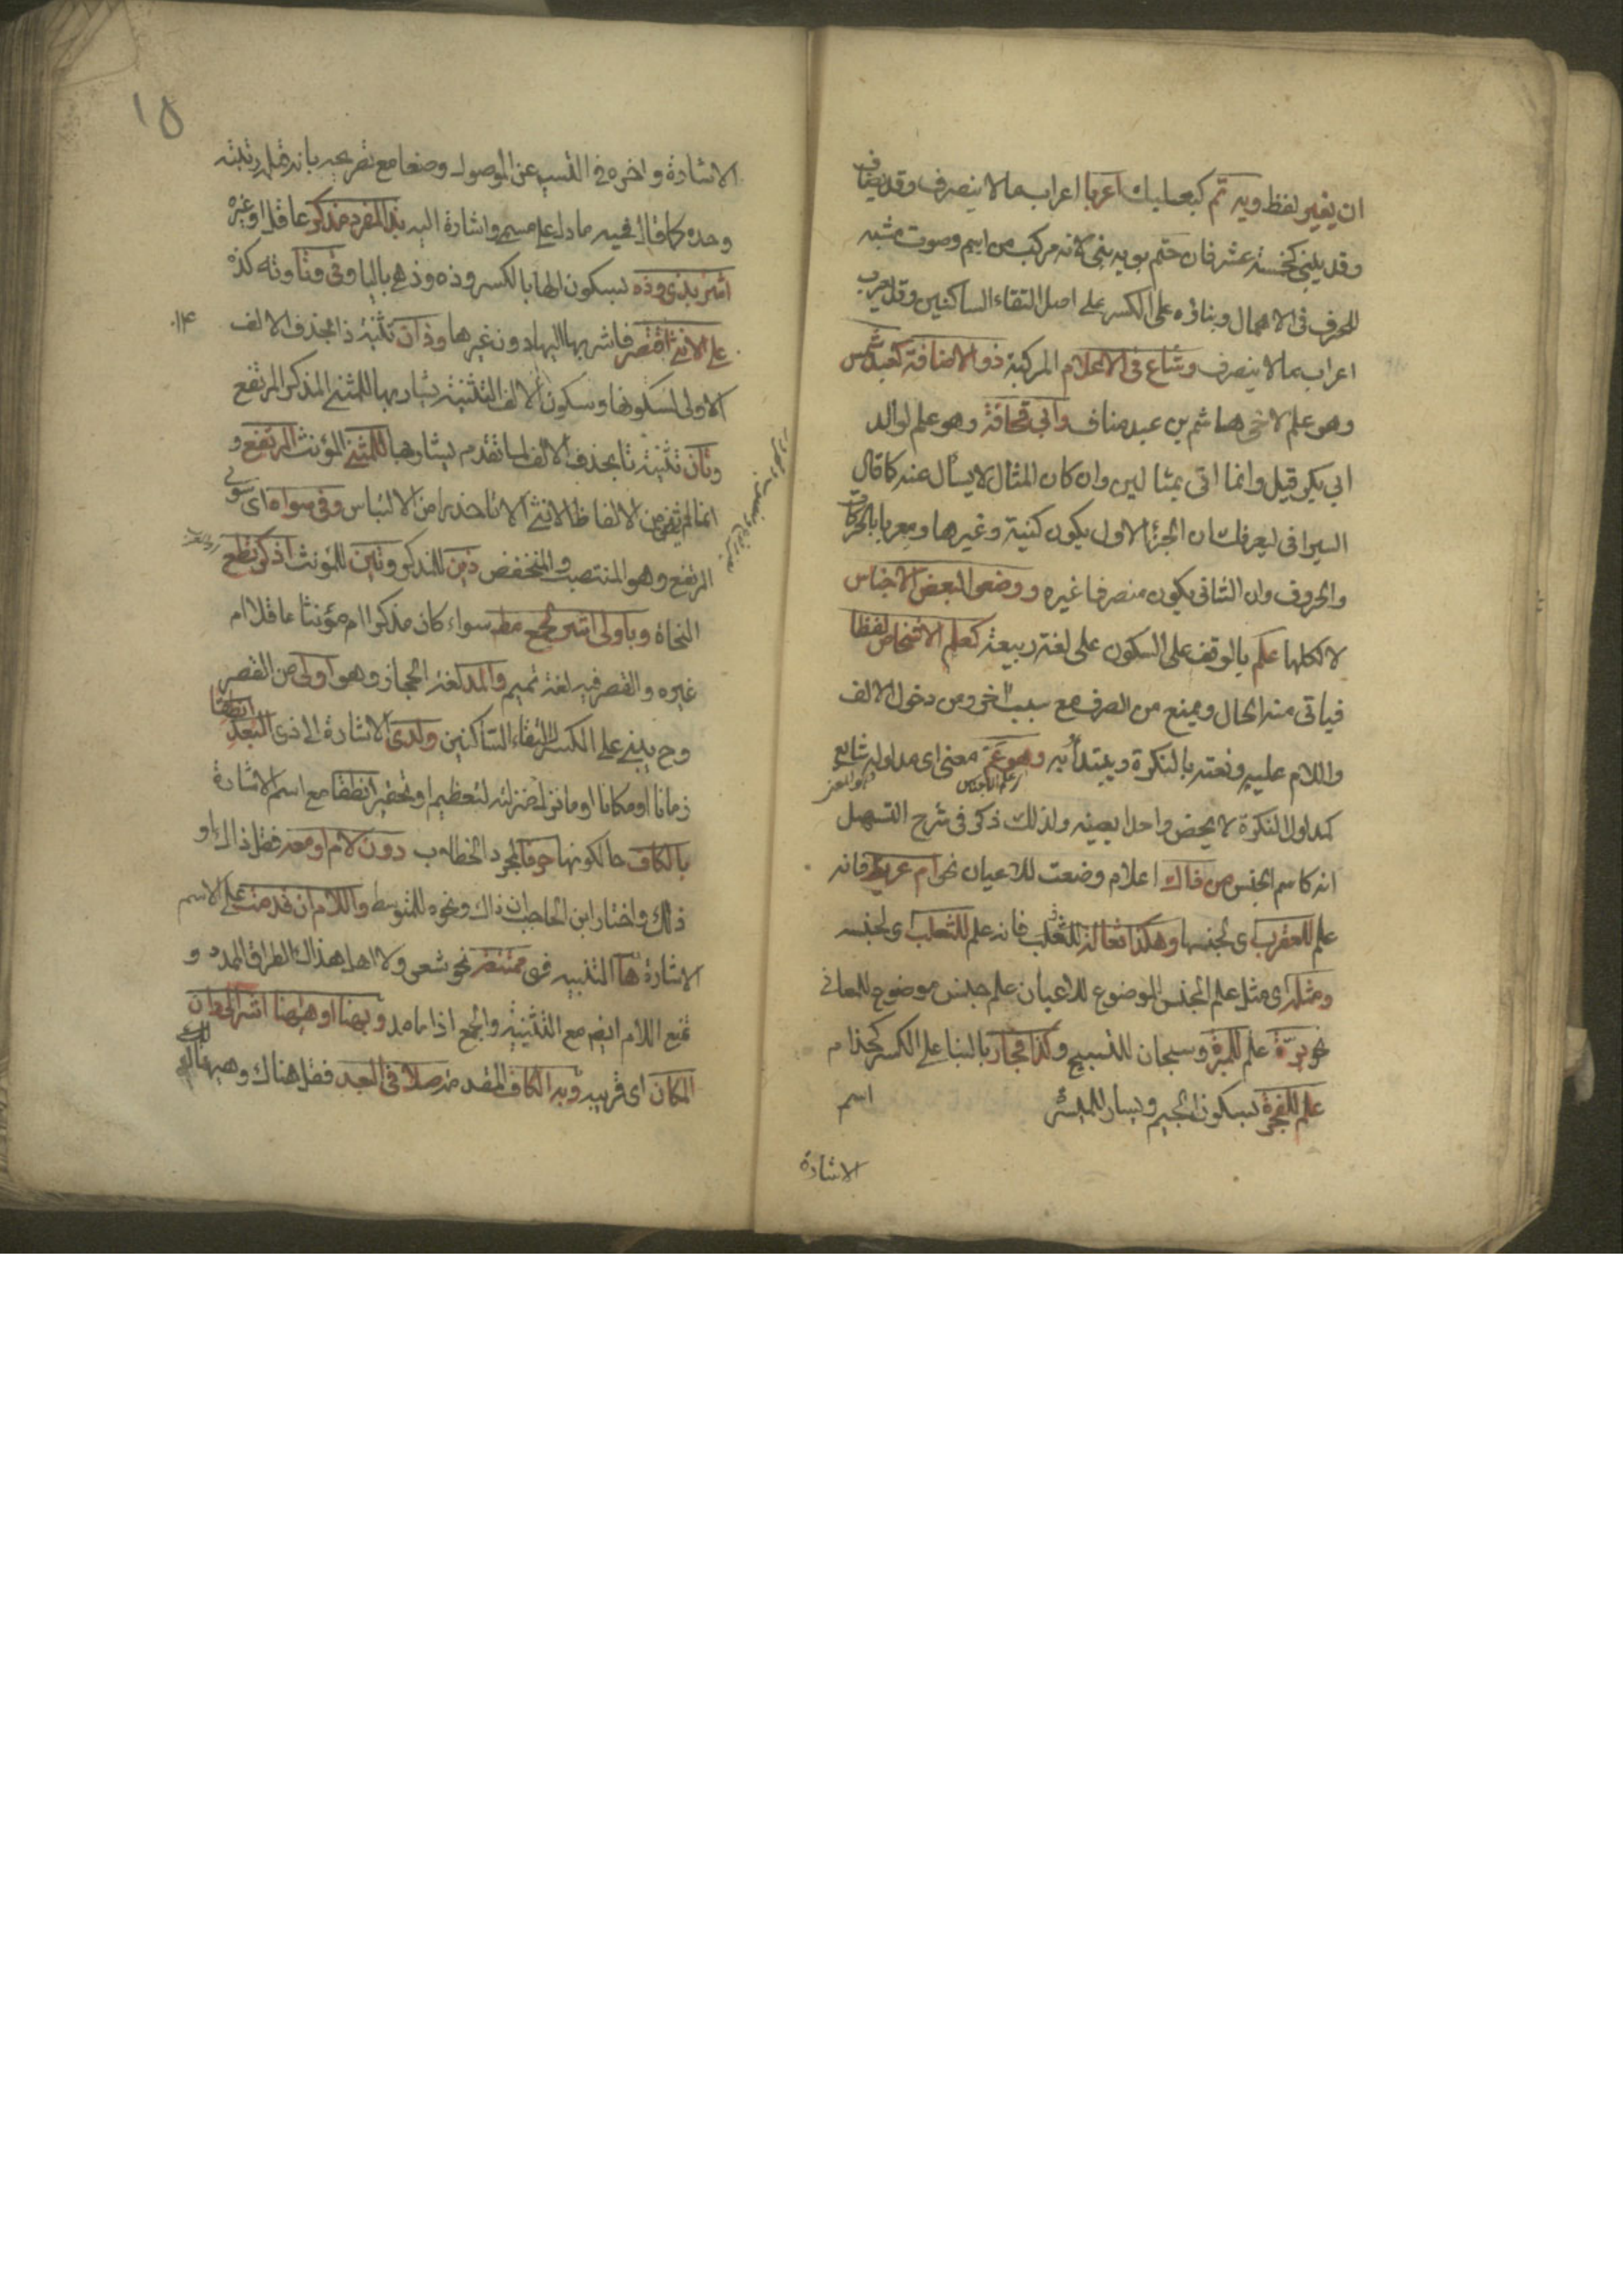 ان بغير لفظ ويه تم كبعلبك اعربا اعراب ما لا ينصرف وقد يضاف
وقد يبنى كخمسة عشر فان ختم بويه بنى لانه مركب من اسم وصوت مشبه
للحرف فى الاهمال وبناؤه على الكسر على اصل التقاء الساكنين وقد يعرب
اعراب ما لا ينصرف وشاع فى الاعلام المركبة ذو الاضافة كعبد شمس
وهو علم لاخى هاشم بن عبد مناف وابى قحافة وهو علم لوالد
ابى بكر قيل وانما اتى بمثالين وان كان المثال لا يسأل عنه كما قال
السيرافى ليعرفك ان الجزء الاول يكون كنية وغيرها ومعربا بالحركات
والحروف وان الثانى يكون منصرفا وغيره ووضعوا لبعض الاجناس
لا لكلها علم بالوقف على السكون على لغة ربيعة كعلم الاشخاص لفظا
فياتى منه الحال ويمنع من الصرف مع سبب اخر ومن دخول الالف
واللام عليه ونعته بالنكرة ويبتدأ به وهو عم معنى اى مدلوله شايع
علم الجنس
كمدلول النكرة لا يخص واحدا بعينه ولذلك ذكر فى شرح التسهيل
انه كاسم الجنس من ذاك اعلام وضعت للاعيان نحو ام عريط فانه
علم للعقرب اى لجنسها وهكذا ثعالة للثعلب فانه علم للثعلب اى لجنسه
ومثله اى مثل علم الجنس الموضوع للاعيان علم جنس موضوع للمعانى
نحو برّة علم للمبرة وسبحان للتسبيح وكذا فجار بالبنا على الكسر كحذام
علم للفجرة بسكون الجيم ويسار للميسرة اسم
الاشارة
١٥
الاشارة واخره فى التسهيل عن الموصول وضعا مع تصريحه بانه قبله رتبته
وحده كما قال فيه ما دل على مسمى واشارة اليه بذا لمفرد مذكر عاقل او غيره
اشر بذى وذه بسكون الها بالكسر وذه وذهى باليا وفى وتا وته كذه
على الانثى اقتصر فاشر بها اليها دون غيرها وذان تثنية ذا بحذف الالف
١٤
الاولى لسكونها وسكون الالف التثنية يشار بها للمثنى المذكر المرتفع
وتان تثنية تا بحذف الالف لما تقدم يشار بها للمثنى المؤنث المرتفع و
انما لم يثن من الالفاظ الانثى الا تا حذرا من الالتباس وفى سواه اى سوى
المرتفع وهو المنتصب والمنخفض ذين للمذكر وتين للمؤنث اذكر تطع
النحاة وباولى اشر لجمع مط سواء كان مذكرا ام مؤنثا عاقلا ام
غيره والقصر فيه لغة تميم والمد لغة الحجاز وهو اولى من القصر
وح يبنى على الكسر لالتقاء الساكنين ولدى الاشارة الى ذى البعد انطقا
زمانا او مكانا او ما نزل منزلته لتعظيم او تحقير انطقا مع اسم الاشارة
بالكاف حالكونها حرفا لمجرد الخطاب دون لام او معه فقل ذاك او
ذلك واختار ابن الحاجب ان ذاك ونحوه للمتوسط واللام ان قدمت على الاسم
الاشارة ها التنبيه فهى ممتنعة نحو شعر ولا اهل هذاك الطراف الممدد و
تمنع اللام ايضا مع التثنية والجمع اذا ما مد وبهنا او ههنا اشر الى دان
المكان اى قريبه وبه الكاف المقدمة صلا فى البعد فقل هناك وههناك